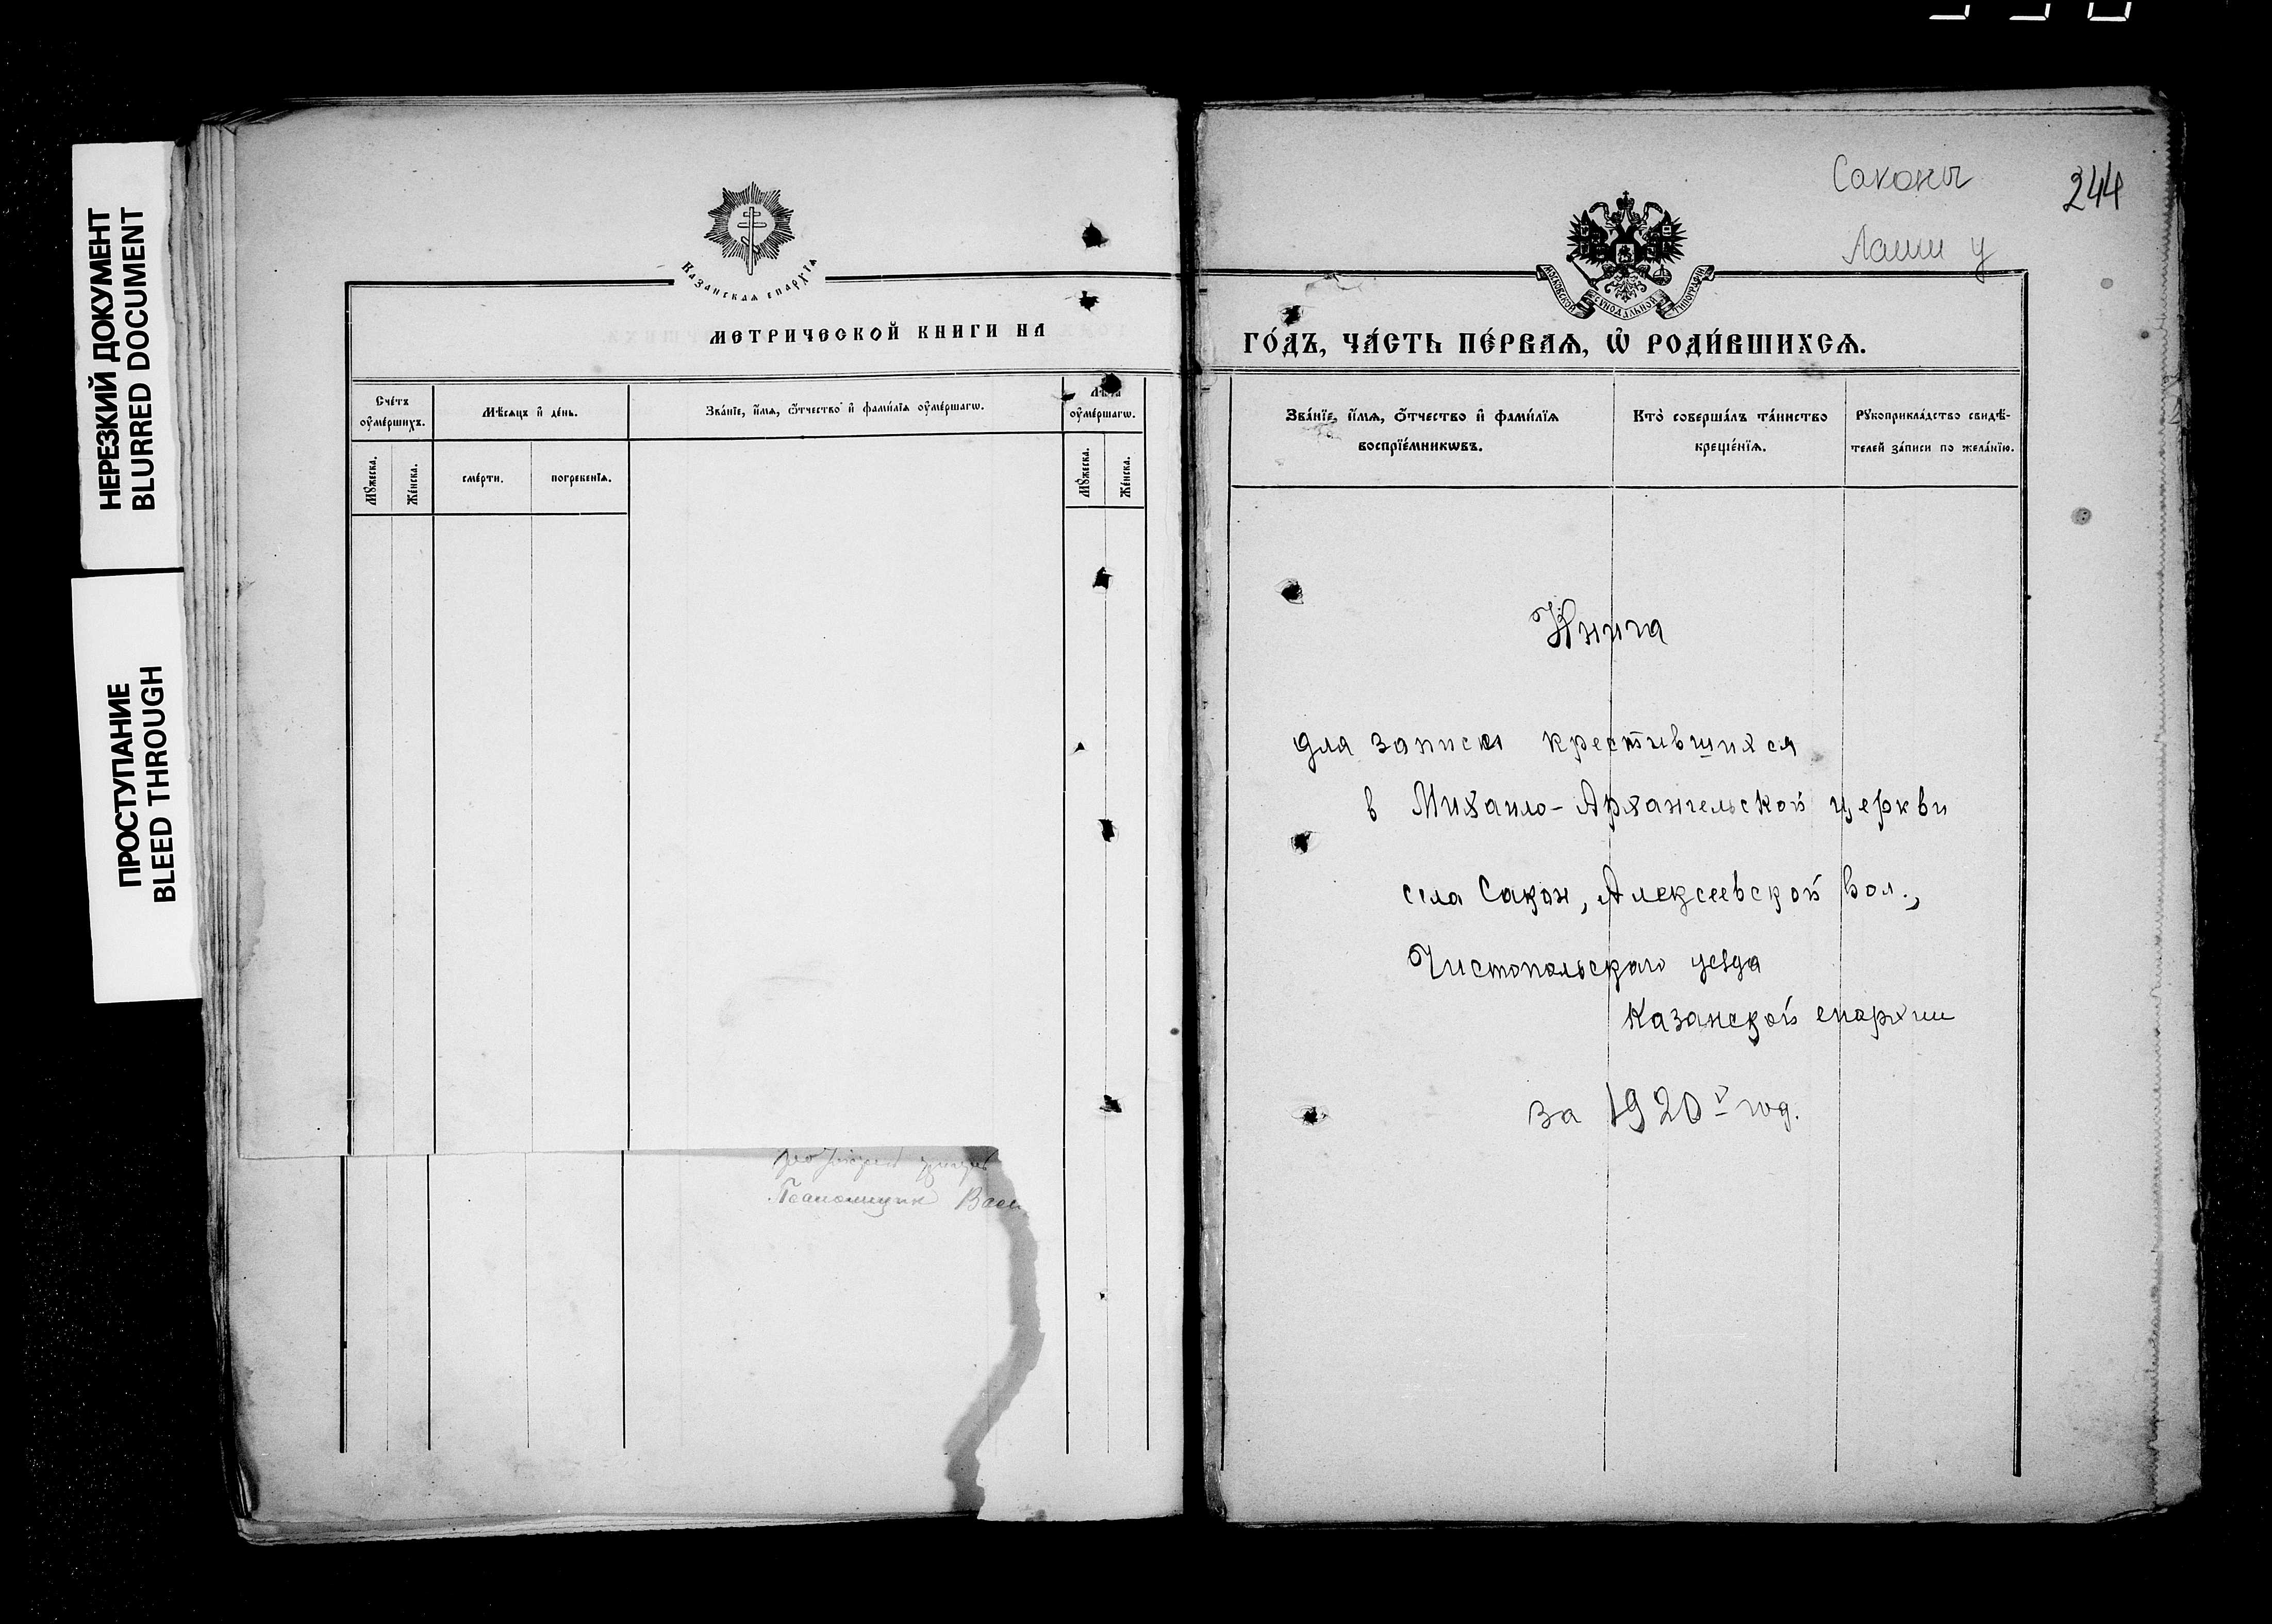 НЕРЕЗКИЙ ДОКУМЕНТ
BLURRED DOCUMENT
ПРОСТУПАНИЕ
BLEED THROUGH
Казанская епархїѧ
МЕТРИЧЕСКОЙ КНИГИ НА
Сче́тъ ᲂу҆ме́ршихъ.
Мѣ́сѧцъ и҆ де́нь.
Зва́нїе, и҆́мѧ, ѻ҆́тчество и҆ фами́лїѧ ᲂу҆ме́ршагѡ.
Лѣ́та ᲂу҆ме́ршагѡ.
Мꙋ́жеска.
Же́нска.
сме́рти.
погребе́нїѧ.
Мꙋ́жеска.
Же́нска.
Василь
Саконы
244
Лаиш у
МОСКОВСКОЙ СѴНОДАЛЬНОЙ ТИПОГРАФІИ
ГО́ДЪ, ЧА́СТЬ ПЕ́РВАѦ, Ѽ РОДИ́ВШИХСѦ.
Зва́нїе, и҆́мѧ, ѻ҆́тчество и҆ фами́лїѧ
воспрїе́мникѡвъ.
Кто̀ соверша́лъ та́инство
креще́нїѧ.
Рꙋкоприкла́дство свидѣ́-
телей за́писи по жела́нїю.
Книга
для записи крестившихся
в Михаило-Архангельской церкви
села Сакон, Алексеевской вол.,
Чистопольскаго уезда
Казанской епархии
за 1920 й год.